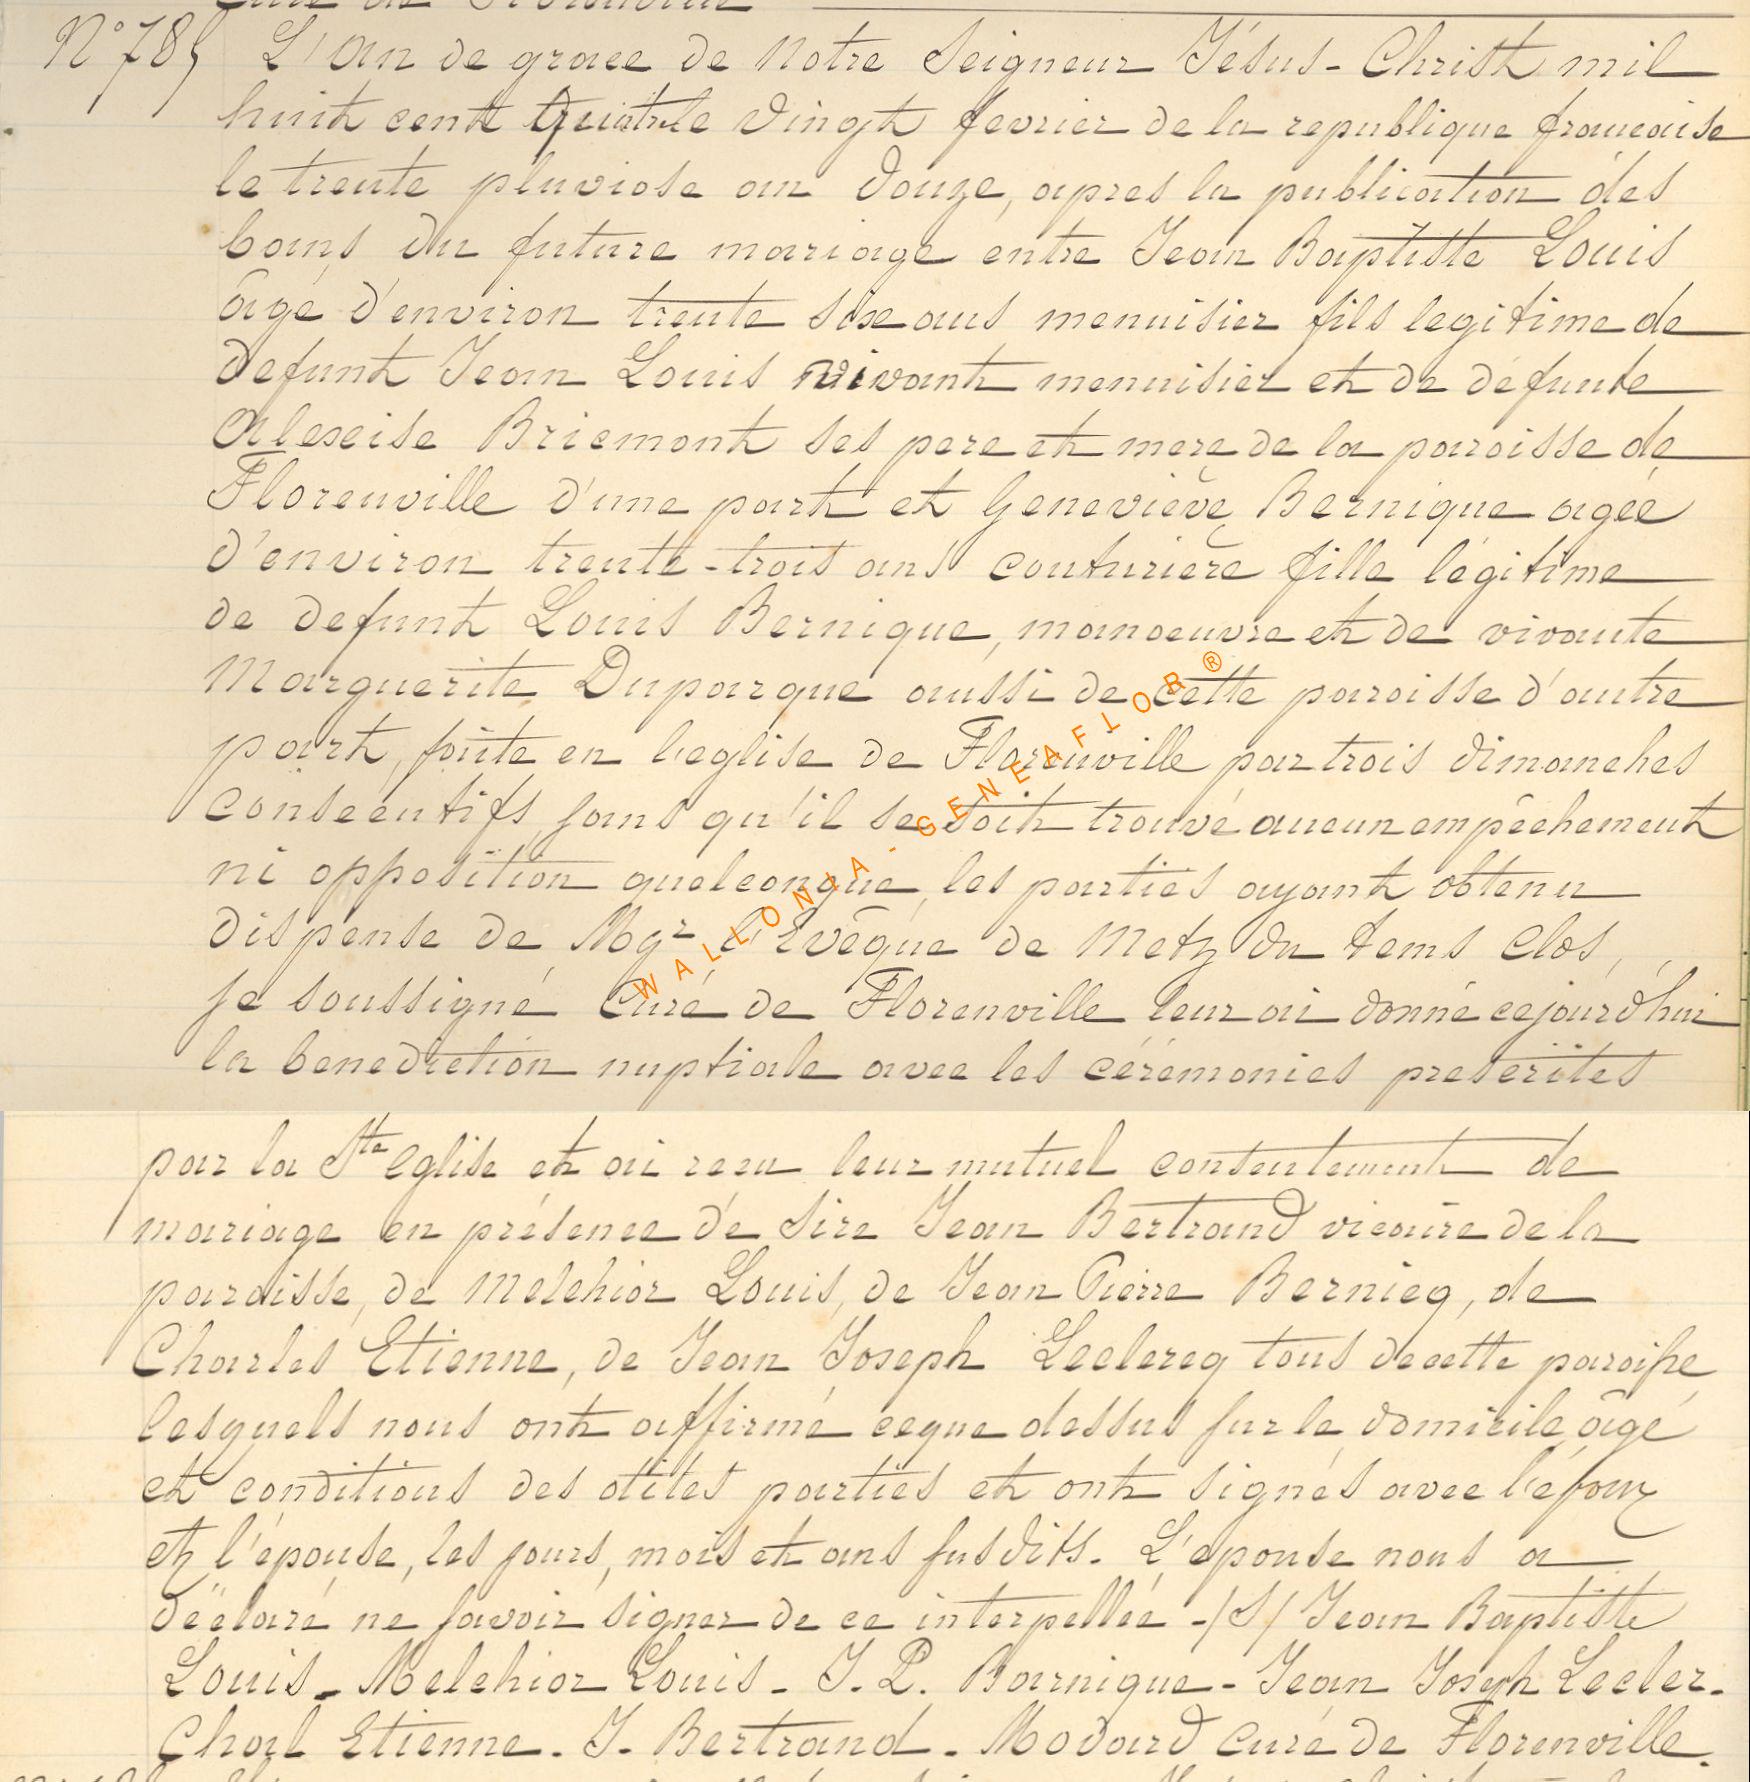 N° 785 L'An de grace de Notre Seigneur Jésus-Christ mil
huit cent quatre vingt fevrier de la republique francaise
le trente pluviose an douze, apres la publication des
bans du future mariage entre Jean Baptiste Louis
âgé d'environ trente six ans menuisier fils legitime de
defunt Jean Louis vivant menuisier et de défunte
Alexise Briemont ses pere et mere de la paroisse de
Florenville d'une part et Geneviève Bernique agée
d'environ trente-trois ans couturière fille légitime
de defunt Louis Bernique, manoeuvre et de vivante
Marguerite Duparque aussi de cette paroisse d'autre
part, faite en l'eglise de Florenville par trois dimanches
consécutifs sans qu'il se soit trouvé aucun empêchement
ni opposition quelconque, les parties ayant obtenu
dispense de Mgr l'Evêque de Metz du tems clos,
je soussigné Curé de Florenville leur ai donné cejourd'hui
la benediction nuptiale avec les cérémonies prescrites
WALLONIA - GENEAFLOR ®
par la Ste Eglise et ai recu leur mutuel consentement de
mariage en présence de Sire Jean Bertrand vicaire de la
paroisse, de Melchior Louis, de Jean Pierre Bernicq, de
Charles Etienne, de Jean Joseph Leclercq tous de cette paroisse
lesquels nous ont affirmé ceque dessus sur le domicile, âgé
et conditions des dites parties et ont signés avec l'époux
et l'épouse, les jours, mois et ans susdits. L'épouse nous a
déclaré ne savoir signer de ce interpellée -/S/ Jean Baptiste
Louis - Melchior Louis - J. P. Barnique - Jean Joseph Lecler.
Charl Etienne. J. Bertrand. Modard curé de Florenville.